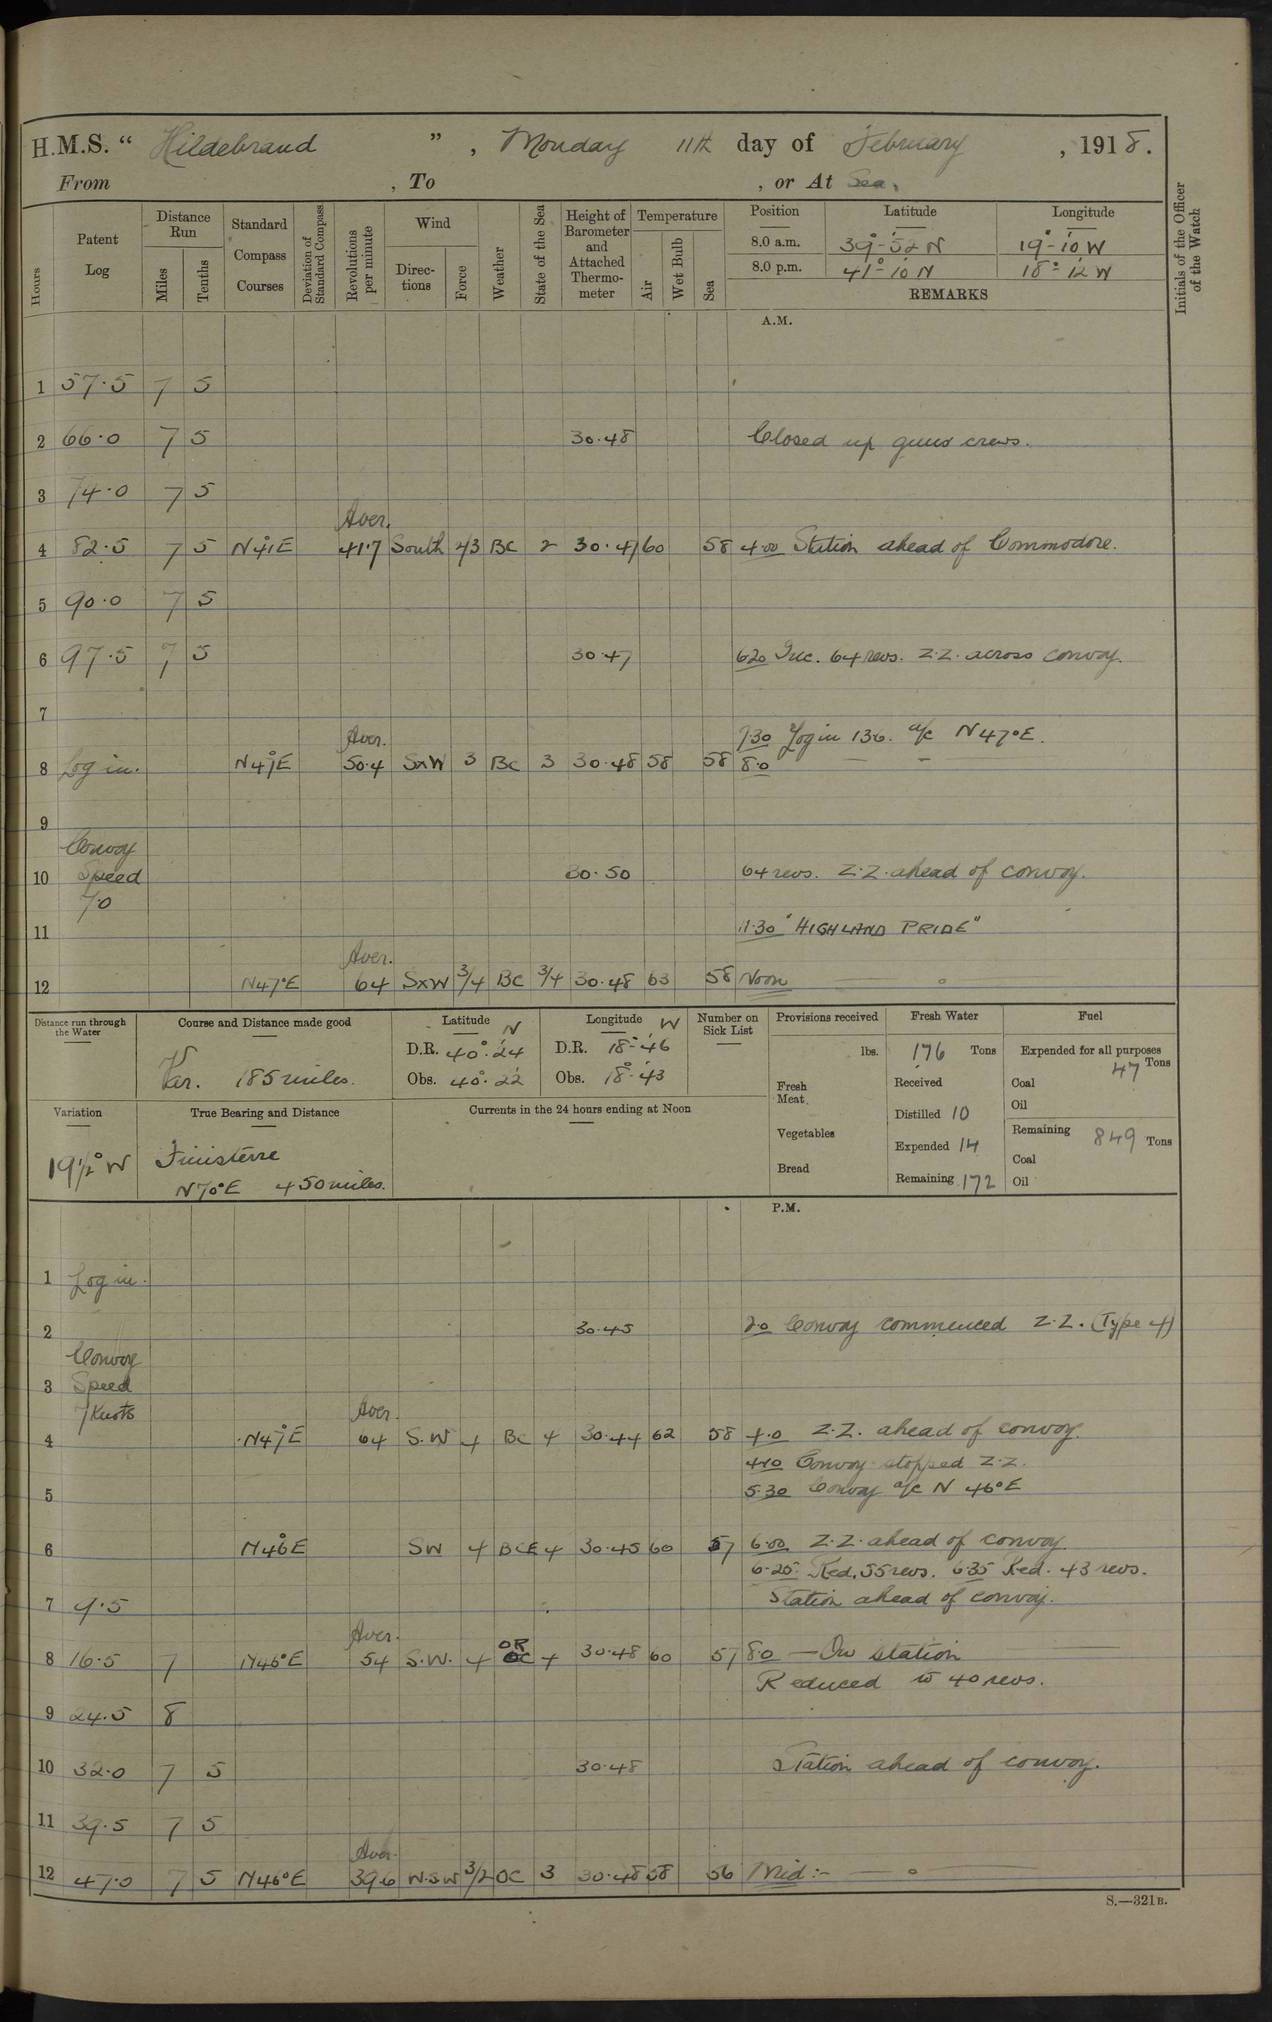 H.M.S. “ Hildebrand ” , Monday 11th day of February , 1918.
From , To , or At Sea,
Hours Patent Log Distance Run Miles Tenths Standard Compass Courses Deviation of Standard Compass Revolutions per minute Wind Directions Force Weather State of the Sea Height of Barometer and Attached Thermometer Temperature Air Wet Bulb Sea Position Latitude Longitude Initials of the Officer of the Watch
8.0 a.m. 39°-52' N 19°-10' W
8.0 p.m. 41°-10' N 18°-12' W
REMARKS
A.M.
1 57.5 7 5
2 66.0 7 5 30.48 Closed up guns crews.
3 74.0 7 5
Aver.
4 82.5 7 5 N41°E 41.7 South 2/3 BC 2 30.47 60 58 4.00 Station ahead of Commodore.
5 90.0 7 5
6 97.5 7 5 30.47 6.20 Inc. 64 revs. Z.Z. across convoy.
7
Aver. 7.30 Log in 136. a/c N47°E.
8 Log in. N47°E 50.4 SxW 3 BC 3 30.48 58 58 8.0 — -
9
Convoy
10 Speed 30.50 64 revs. Z.Z. ahead of convoy.
7.0
11 11.30 "HIGHLAND PRIDE"
Aver.
12 N47°E 64 SxW 3/4 BC 3/4 30.48 63 58 Noon
Distance run through the Water Course and Distance made good Latitude N Longitude W Number on Sick List Provisions received Fresh Water Fuel
Var. 185 miles. D.R. 40°.24' D.R. 18°-46' lbs. 176 Tons Expended for all purposes
47 Tons
Obs. 40°.22' Obs. 18°-43' Fresh Meat Received Coal
Oil
Variation True Bearing and Distance Currents in the 24 hours ending at Noon Distilled 10
19½° W Finisterre Vegetables Expended 14 Remaining 849 Tons
Coal
N70°E 450 miles. Bread Remaining 172 Oil
P.M.
1 Log in.
2 30.45 2.0 Convoy commenced Z.Z. (Type 4)
Convoy
3 Speed
7 Knots Aver.
4 N47°E 64 S.W 4 BC 4 30.44 62 58 4.0 Z.Z. ahead of convoy.
4.10 Convoy stopped Z.Z.
5 5.30 Convoy a/c N 46°E
6 N46°E SW 4 BCE 4 30.45 60 57 6.00 Z.Z. ahead of convoy
6.25 Red. 55 revs. 6.35 Red. 43 revs.
7 9.5 Station ahead of convoy.
Aver. OR
8 16.5 7 N46°E 54 S.W. 4 OC 4 30.48 60 57 8.0 — On station
Reduced to 40 revs.
9 24.5 8
10 32.0 7 5 30.48 Station ahead of convoy.
11 39.5 7 5
Aver.
12 47.0 7 5 N46°E 39.6 W.SW 3/2 OC 3 30.48 58 56 Mid:-
S.—321B.